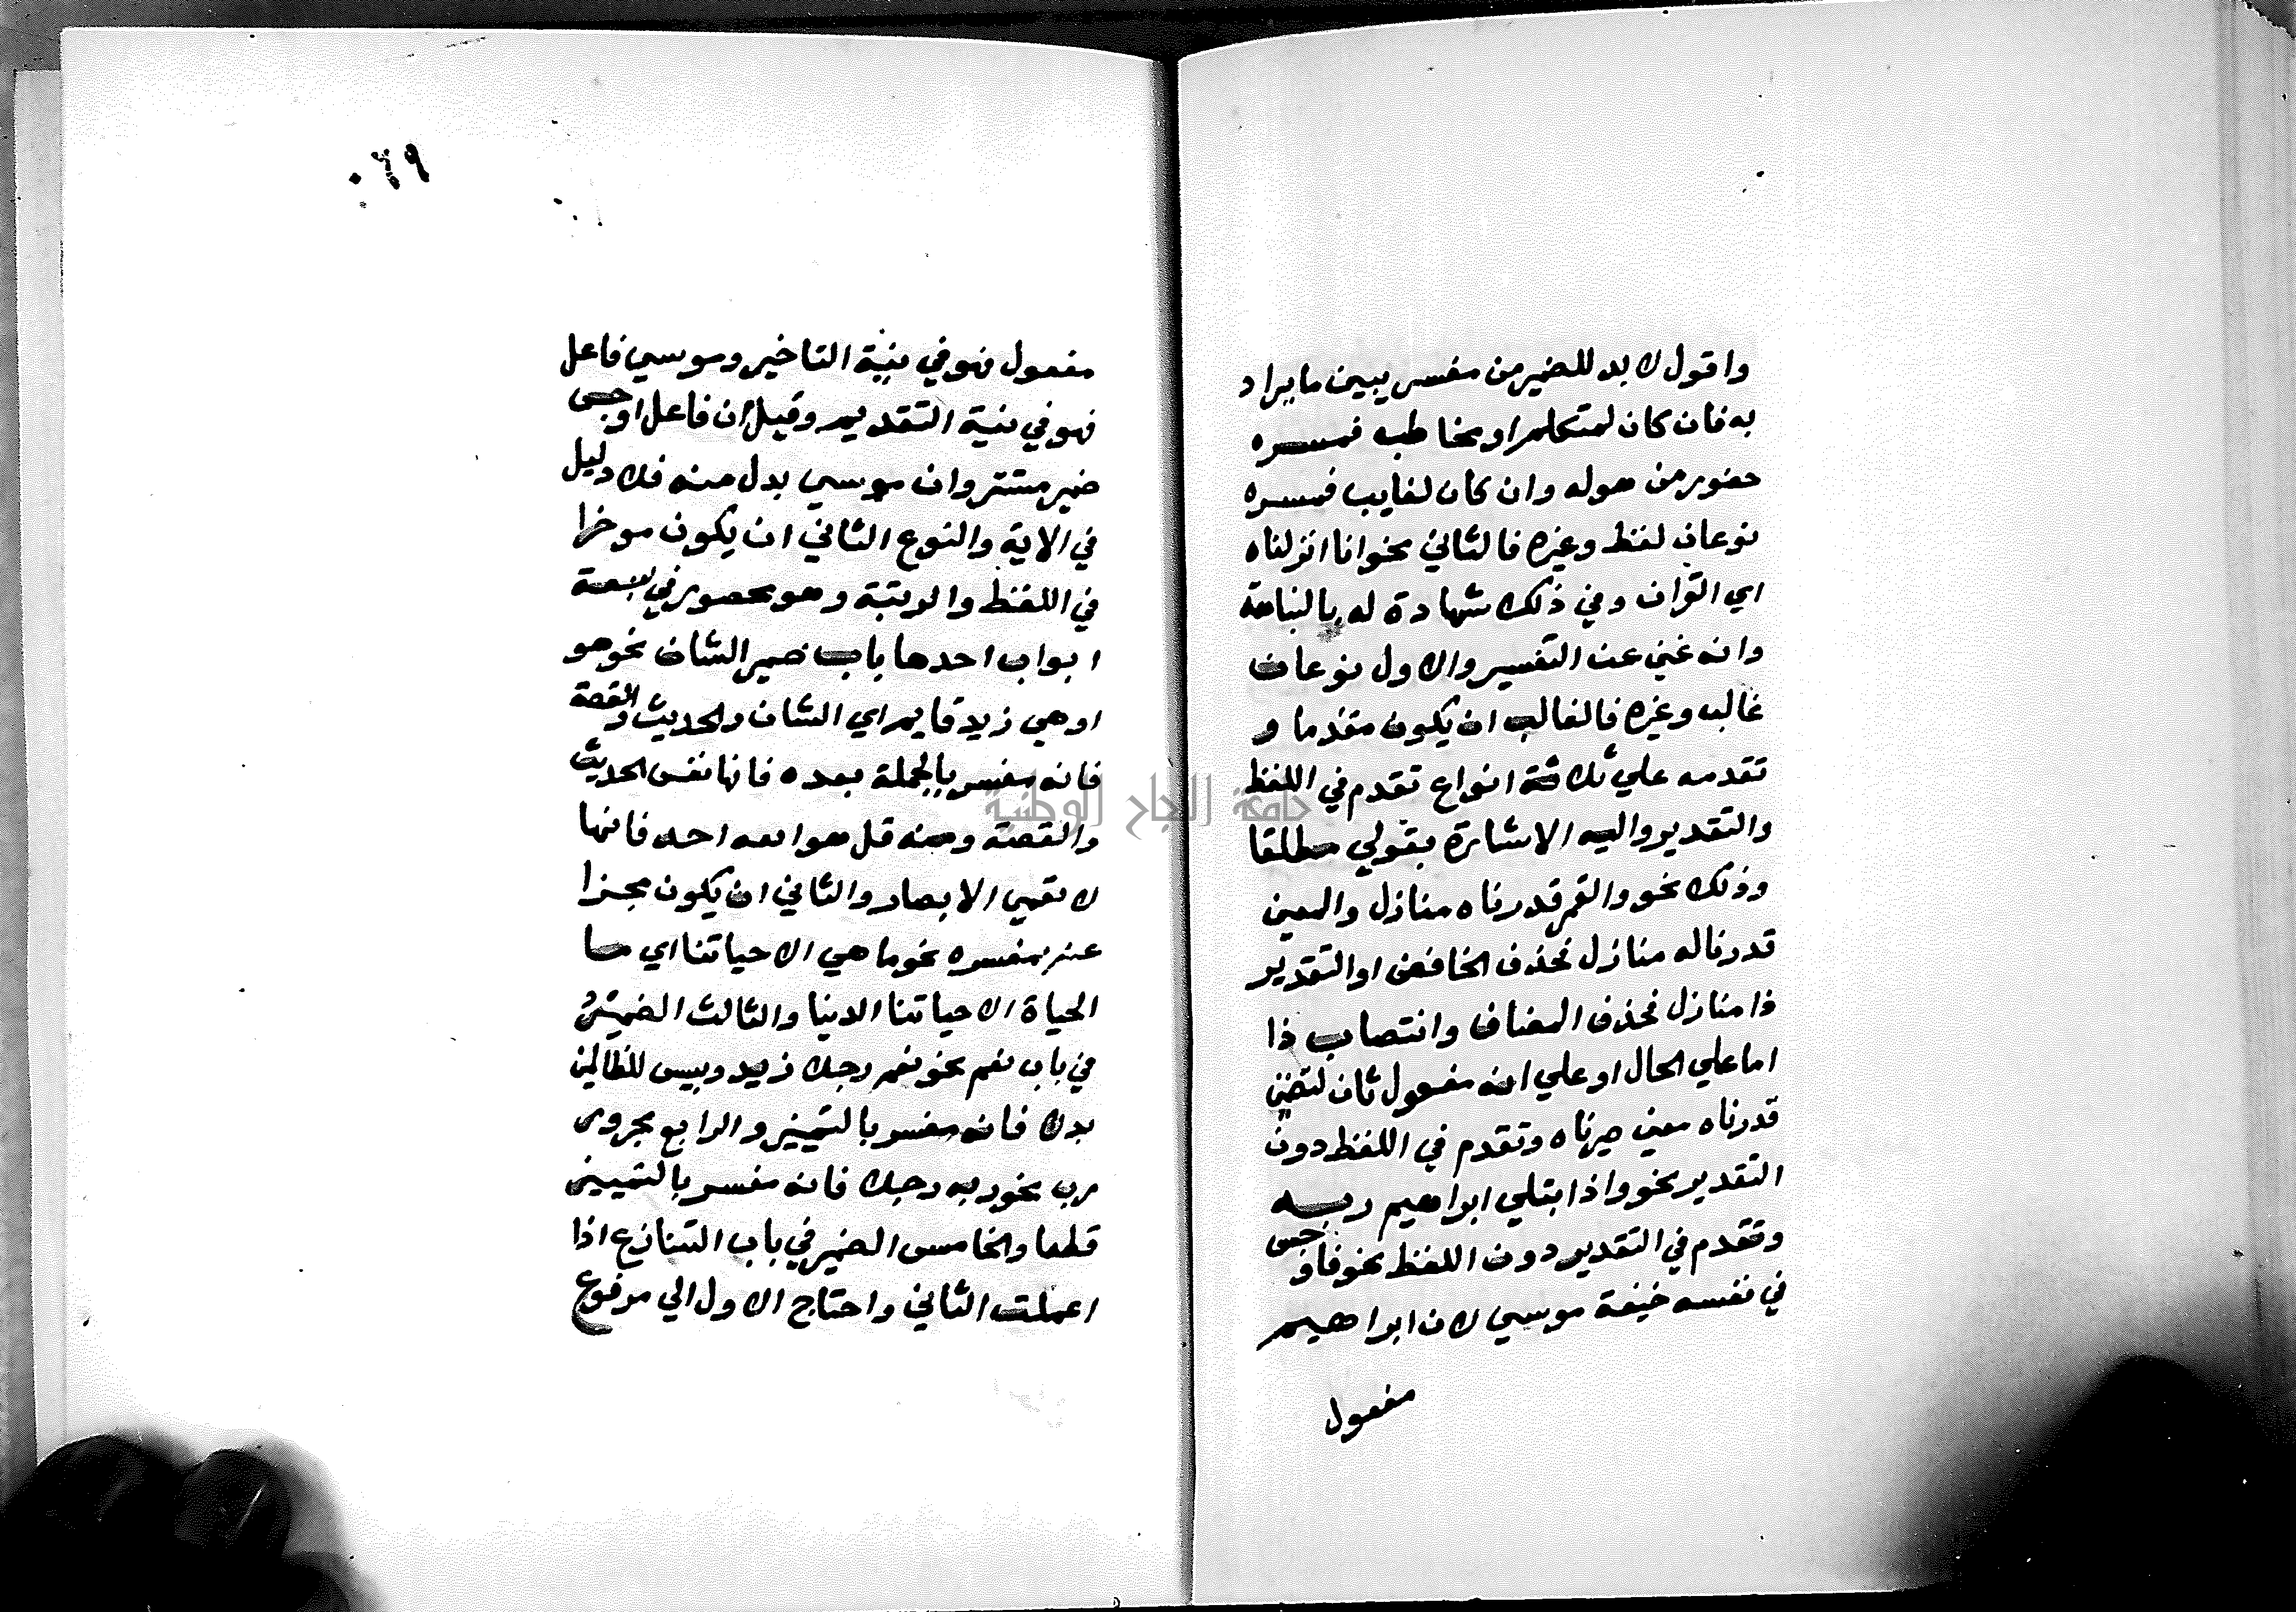 واقول لا بد للضمير من مفسر يبين ما يراد
به فان كان لمتكلم او مخاطب فمفسره
حضور من هوله وان كان لغايب فمفسره
نوعان لفظ وغيره فالثاني نحو انا انزلناه
اي القران وفي ذلك شهادة له بالنباهة
وانه غني عن التفسير والاول نوعان
غالب وغيره فالغالب ان يكون متقدما و
تقدمه علي ثلاثة انواع تقدم في اللفظ
والتقدير واليه الاشارة بقولي مطلقا
وذلك نحو والقمر قدرناه منازل والمعني
قدرنا له منازل فحذف الخافض او التقدير
ذا منازل فحذف المضاف وانتصاب ذا
اما علي الحال او علي انه مفعول ثان لتضمن
قدرناه معني صيرناه وتقدم في اللفظ دون
التقدير نحو واذا ابتلي ابراهيم ربه
وتقدم في التقدير دون اللفظ نحو فاوجس
في نفسه خيفة موسي لان ابراهيم
مفعول
٠٦٩
مفعول فهو في نية التاخير وموسي فاعل
فهو في نية التقديم وقيل ان فاعل اوجس
ضمير مستتر وان موسي بدل منه فلا دليل
في الاية والنوع الثاني ان يكون موخرا
في اللفظ والرتبة وهو محصور في سبعة
ابواب احدها باب ضمير الشان نحو هو
او هي زيد قايم اي الشان والحديث والقصة
فانه مفسر بالجملة بعده فانها نفس الحديث
والقصة ومنه قل هو الله احد فانها
لا تعمي الابصار والثاني ان يكون مخبرا
عنه بمفسره نحو ما هي الا حياتنا اي ما
الحياة الا حياتنا الدنيا والثالث الضمير
في باب نعم نحو نعم رجلا زيد وبيس للظالمين
بدلا فانه مفسر بالتمييز والرابع مجرور
رب نحو ربه رجلا فانه مفسر بالتمييز
قطعا والخامس الضمير في باب التنازع اذا
اعملت الثاني واحتاج الاول الي مرفوع
جامعة النجاح الوطنية